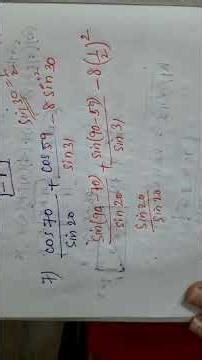 -1
sin 30 = 1/2
7) cos 70/sin 20 + cos 59/sin 31 - 8 sin² 30
sin(90-70)/sin 20 + sin(90-59)/sin 31 - 8(1/2)²
sin 20/sin 20